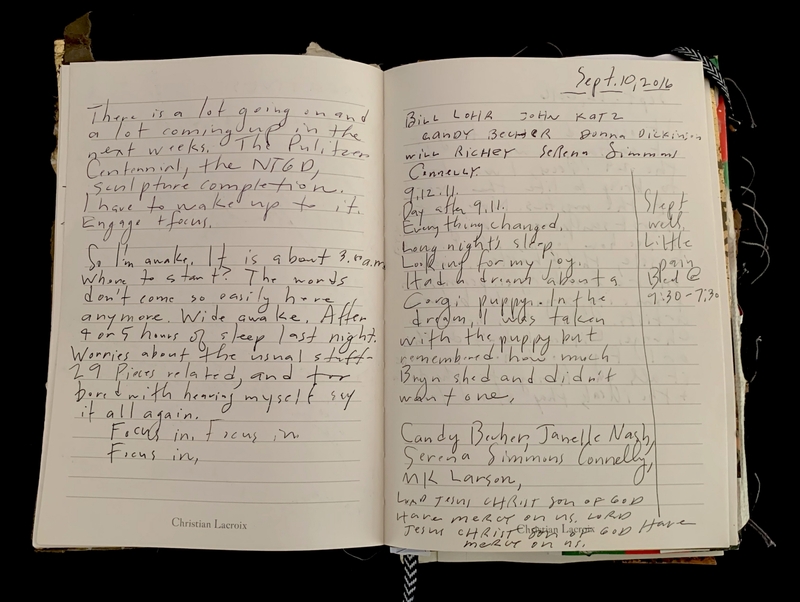 There is a lot going on and
a lot coming up in the
next weeks. The Pulitzer
Centennial, the NTGD,
sculpture completion.
I have to wake up to it.
Engage + focus.
So I'm awake. It is about 3. a.m.
Where to start? The words
don't come so easily here
anymore. Wide awake. After
4 or 5 hours of sleep last night.
Worries about the usual stuff
29 Pieces related, and for
bored with hearing myself say
it all again.
Focus in, Focus in
Focus in,
Christian Lacroix
Sept. 10, 2016
Bill Lohr John Katz
Candy Becher Donna Dickinson
Will Richey Serena Simmons
Connelly.
9.12.11.
Day after 9.11.
Everything changed.
Long night's sleep
Looking for my joy.
Had a dream about a
Corgi puppy. In the
dream, I was taken
with the puppy but
remembered how much
Bryn shed and didn't
want one,
Slept
well.
Little
pain
Bed @
9:30-7:30
Candy Becher, Janelle Nash,
Serena Simmons Connelly,
MK Larson,
Lord Jesus Christ son of God
Have mercy on us. Lord
Jesus Christ son of God Have
mercy on us.
Christian Lacroix